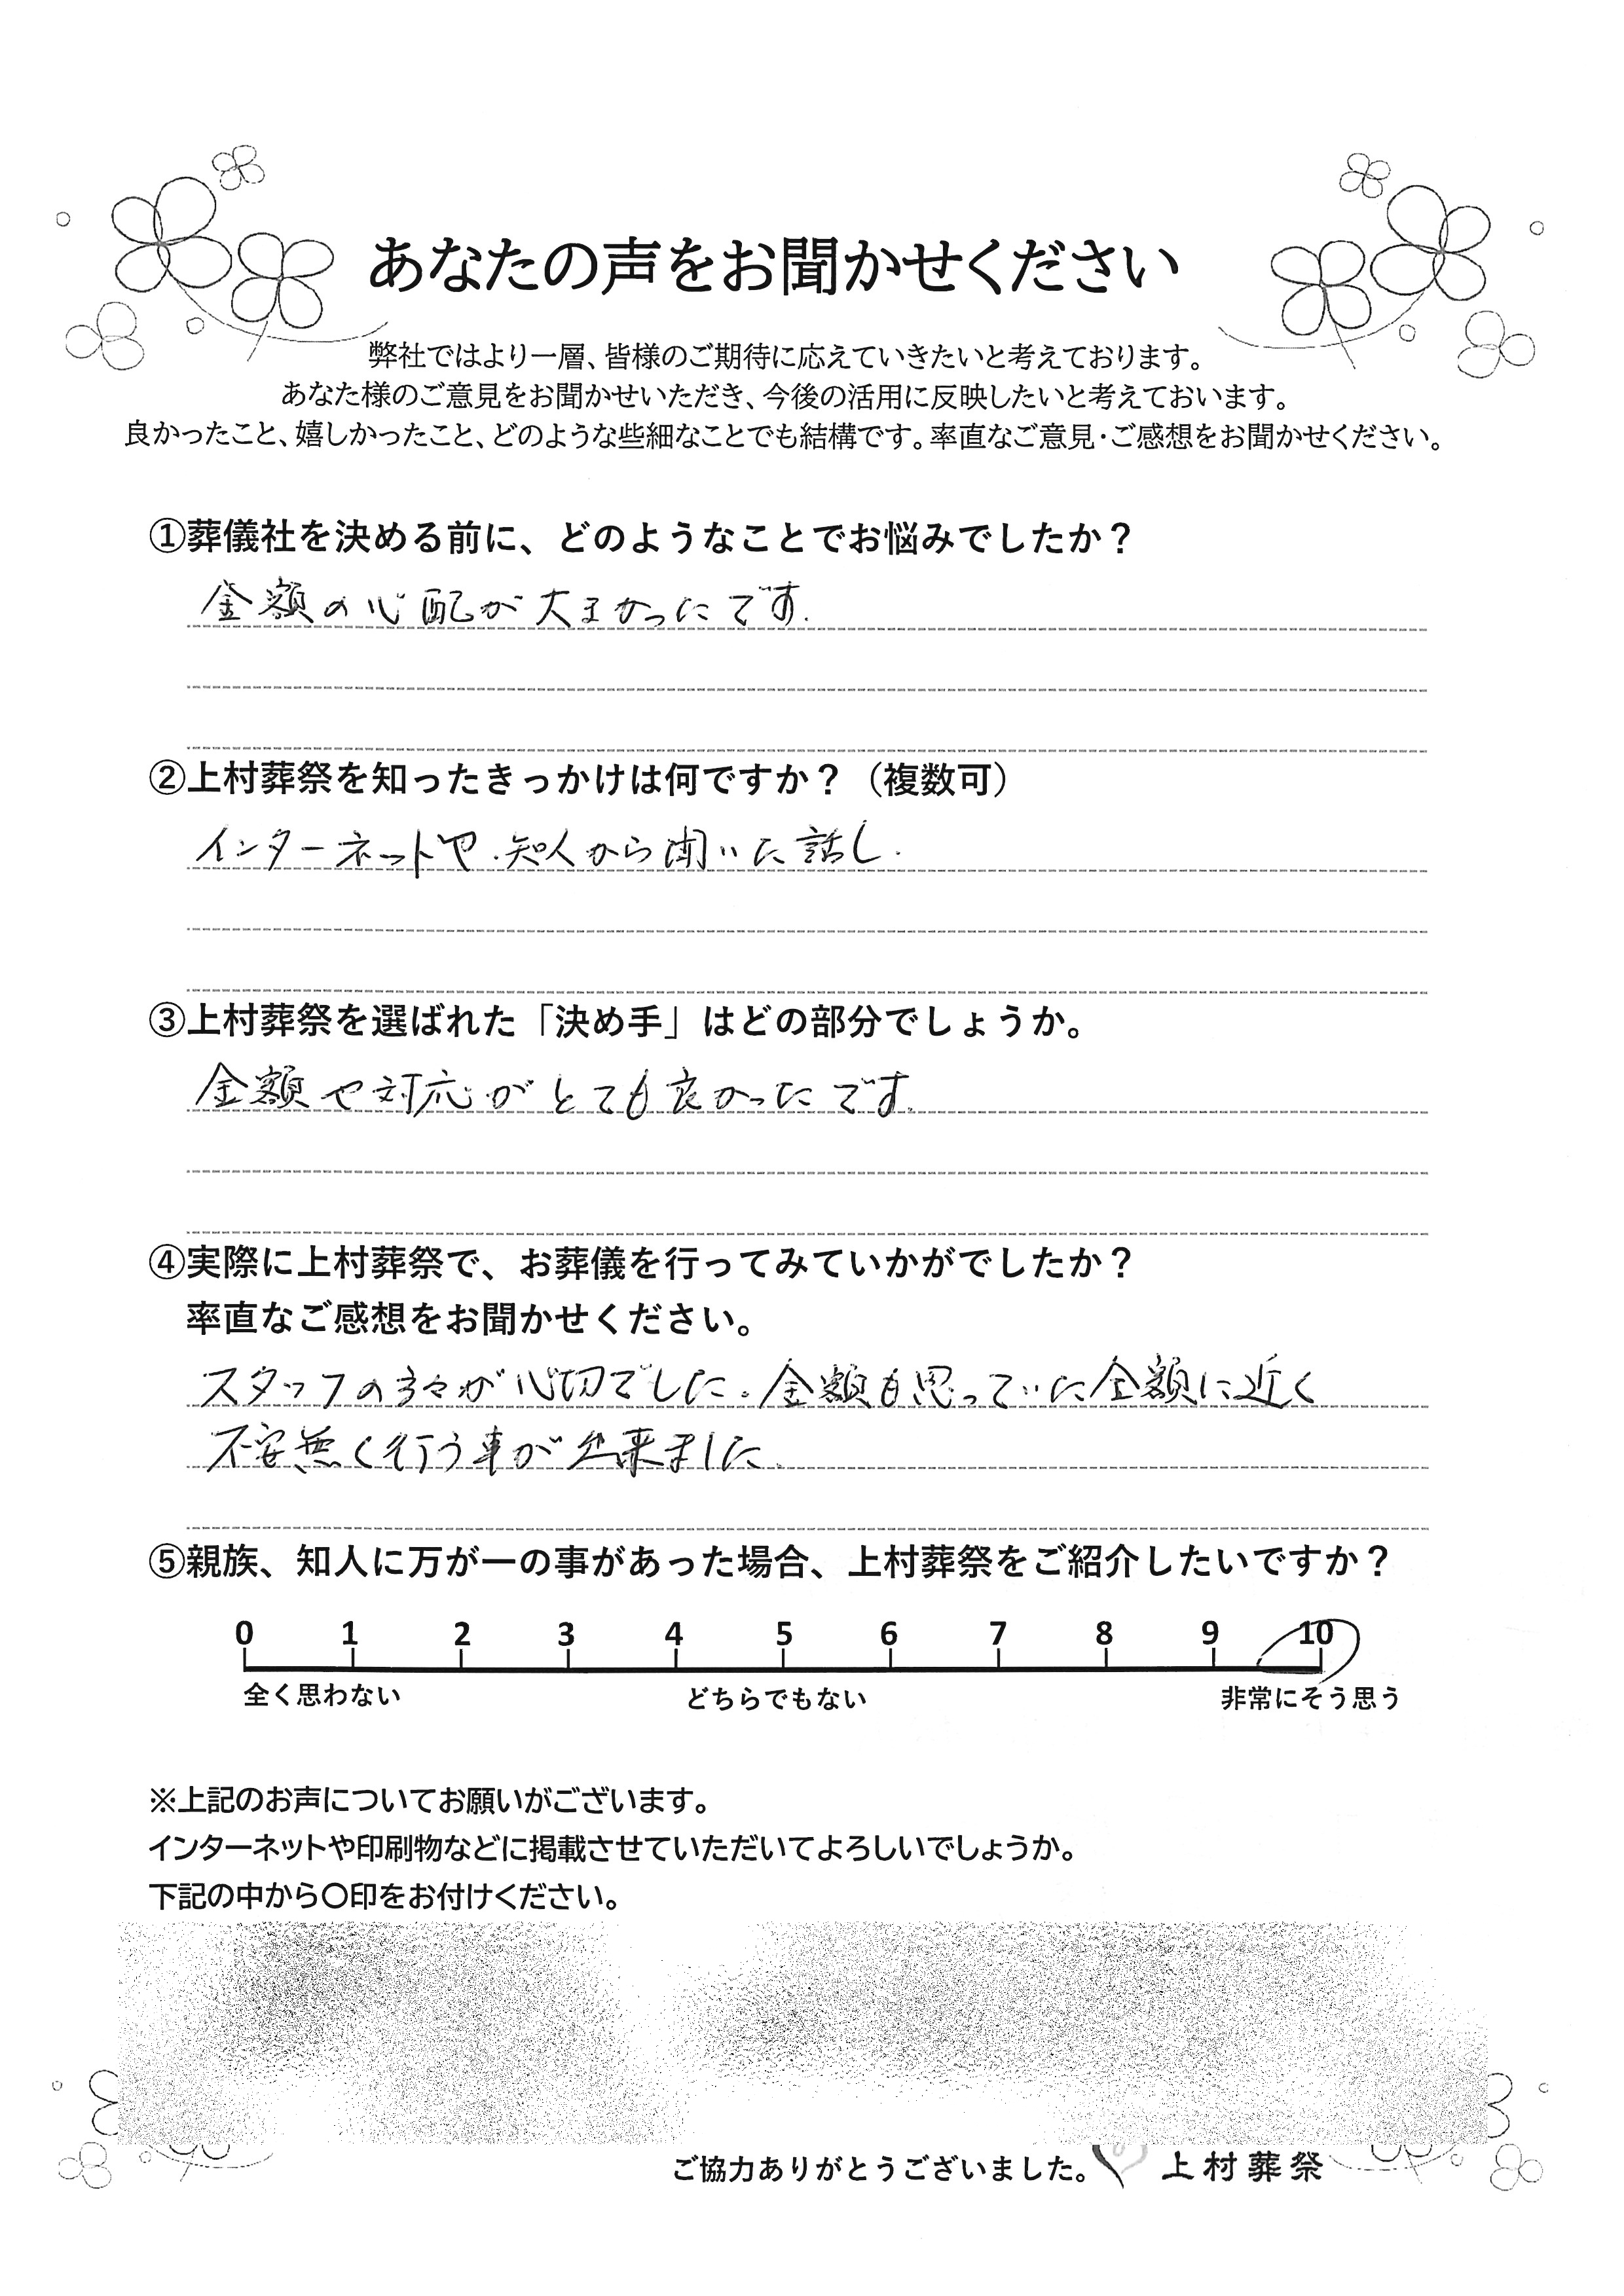 あなたの声をお聞かせください
弊社ではより一層、皆様のご期待に応えていきたいと考えております。
あなた様のご意見をお聞かせいただき、今後の活用に反映したいと考えておいます。
良かったこと、嬉しかったこと、どのような些細なことでも結構です。率直なご意見・ご感想をお聞かせください。
①葬儀社を決める前に、どのようなことでお悩みでしたか？
金額の心配が大きかったです.
②上村葬祭を知ったきっかけは何ですか？（複数可）
インターネットや.知人から聞いた話し.
③上村葬祭を選ばれた「決め手」はどの部分でしょうか。
金額や対応がとても良かったです.
④実際に上村葬祭で、お葬儀を行ってみていかがでしたか？
率直なご感想をお聞かせください。
スタッフの方々が心切でした.金額も思っていた金額に近く
不安無く行う事が出来ました.
⑤親族、知人に万が一の事があった場合、上村葬祭をご紹介したいですか？
0 1 2 3 4 5 6 7 8 9 10
全く思わない どちらでもない 非常にそう思う
※上記のお声についてお願いがございます。
インターネットや印刷物などに掲載させていただいてよろしいでしょうか。
下記の中から〇印をお付けください。
ご協力ありがとうございました。 上村葬祭